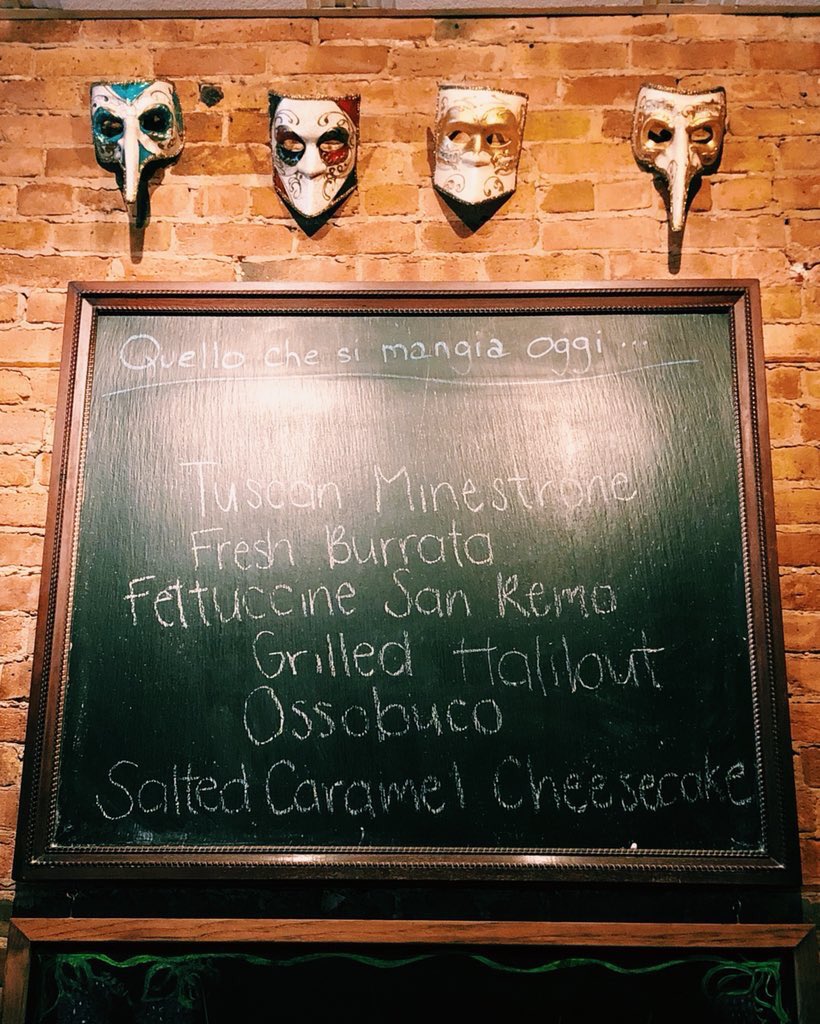 Quello che si mangia oggi ...
Tuscan Minestrone
Fresh Burrata
Fettuccine San Remo
Grilled Halibut
Ossobuco
Salted Caramel Cheesecake